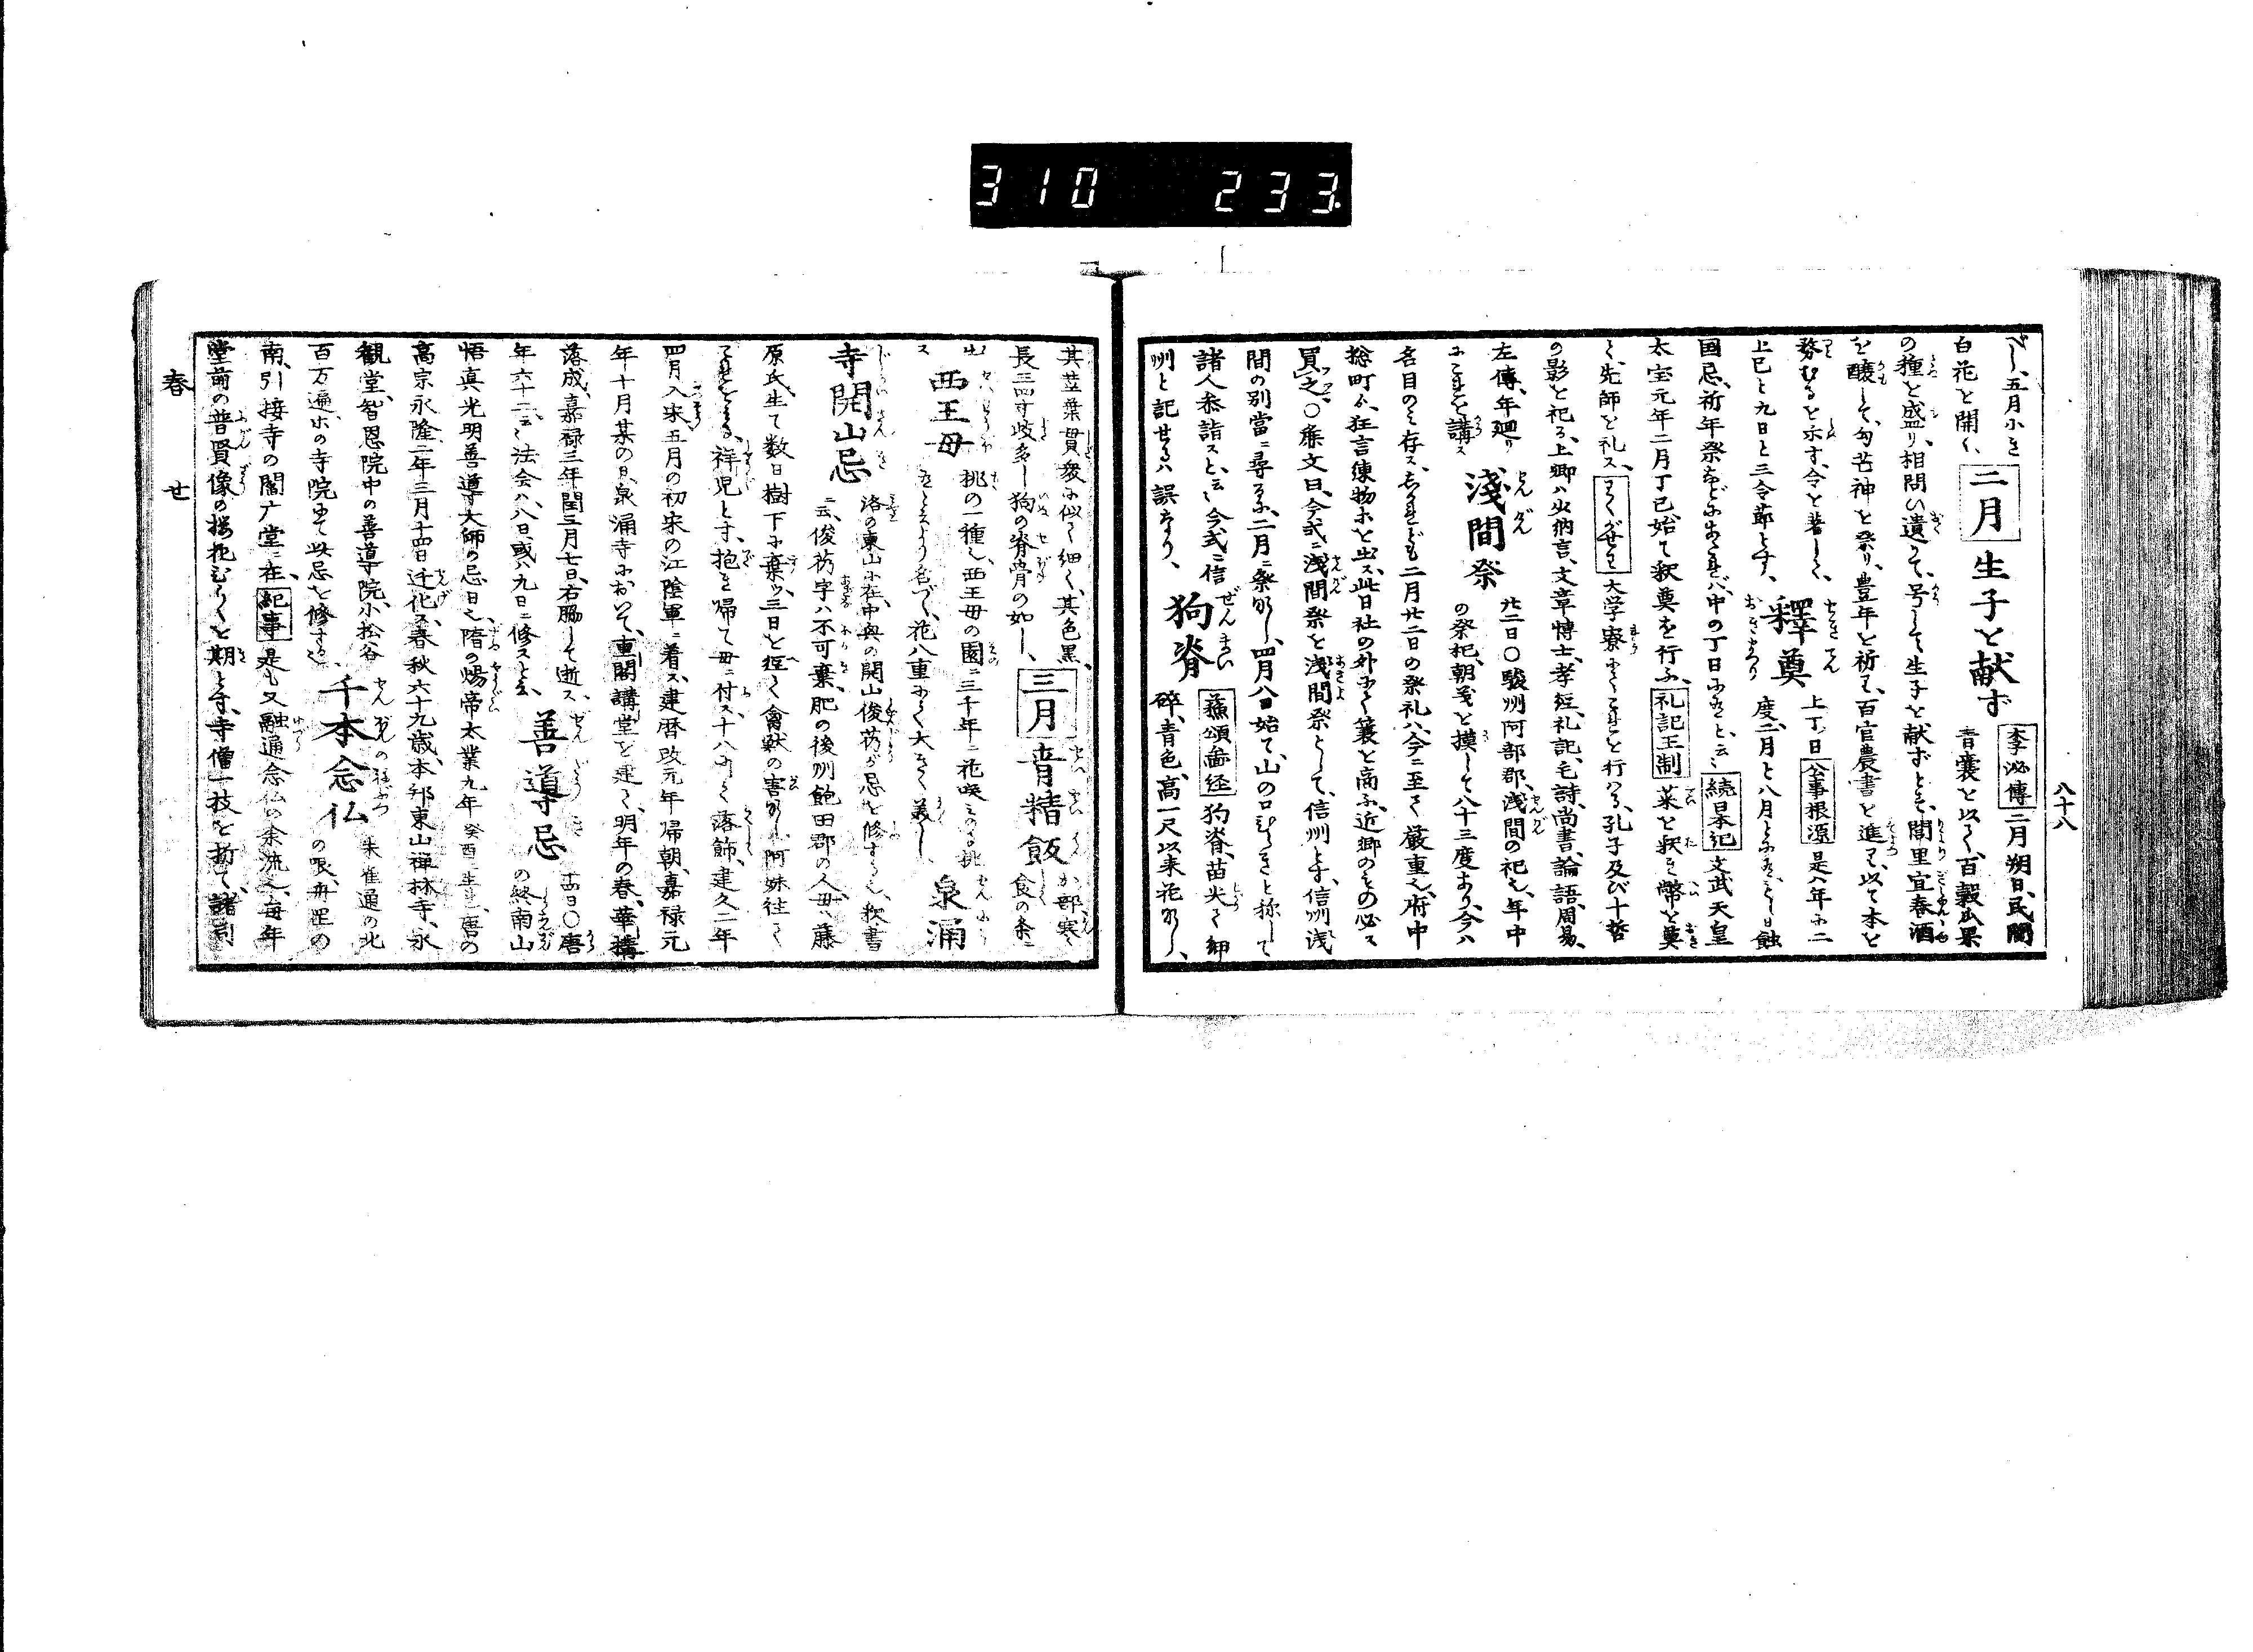 310 233
八十八
べし、五月小き
白花を開く、 二月 生子を献ず 李泌傳 二月朔日、民間
青嚢を以く、百穀瓜果
の種を盛り、相問ひ遺るて、号して生子を献ずとす、閭里宜春酒
を醸して、勾芒神を祭り、豊年を祈る、百官農書を進る、以て本を
務むるを示す、令を著して、 釋奠 上丁日 公事根源 是ハ年に二
上巳と九日と三令節とす、 度、二月と八月と
国忌、祈年祭などにあたれバ、中の丁日に 続日本紀 文武天皇
太宝元年二月丁巳始て釈奠を行ふ、 礼記王制 菜を釈き幣を奠
て、先師を礼ス、 大学寮にてこれを行ハる、孔子及び十哲
の影を祀る、上卿ハ少納言、文章博士、孝経、礼記、毛詩、尚書、論語、周易、
左傳、年廻り 淺間祭 廿二日〇駿州阿部郡、浅間の祀也、年中
にこれを講ス の祭祀、朝夕を摸して八十三度あり、今ハ
名目のミ存ス、されども二月廿二日の祭礼ハ、今ニ至て厳重也、府中
惣町ゟ、狂言練物ホを出ス、此日社の外にて簑を商ふ、近郷のもの必ス
買之、〇廉文曰、今式ニ浅間祭を浅間祭として、信州とす、信州浅
間の別當ニ尋るに、二月ニ祭なし、四月八日始て、山の口ひらきと称して
諸人参詣スと云、今式ニ信 狗脊 蘓頌啚経 狗脊、苗尖く細
州と記せるハ誤なり、 碎、青色、高一尺以来花なし、
其茎葉貫衆に似て細く、其色黒、 三月 青精飯
長三四寸岐多し狗の脊骨の如し、 食の条ニ
出 西王母 桃の一種也、西王母の園ニ三千年ニ花咲ミのる桃
ス 花八重にて大きく美し、 泉涌
寺開山忌 洛の東山に在、中興の開山俊芿が忌を修する也、釈書
ニ云、俊芿字ハ不可棄、肥の後州飽田郡の人、母ハ藤
原氏、生て数日樹下に棄ツ、三日を経て禽獣の害なし、阿姉往て
これをみる、祥児とす、抱き帰て母ニ付ス、十八にて落飾、建久二年
四月入宋、五月の初宋の江陰軍ニ着ス、建暦改元年帰朝、嘉禄元
年十月某の日、泉涌寺において、重閣講堂を建て、明年の春、華構
落成、嘉禄三年閏三月七日、右脇して逝ス、 善導忌 十四日〇唐
年六十二、云〻法会ハ、八日、或ハ九日ニ修スと云、 の終南山
悟真光明善導大師の忌日也、隋の煬帝太業九年癸酉生、唐の
高宗永隆二年三月十四日迁化ス、春秋六十九歳、本邦東山禅林寺、永
観堂、智恩院中の善導院、小松谷 千本念仏 朱雀通の北
百万遍、ホの寺院にて此忌を修する也、
南、引接寺の閻广堂ニ在、 紀事 是も又融通念仏の余流也、毎年
堂前の普賢像の桜花ひらくを期とす、寺僧一枝を折て、諸司
春 せ